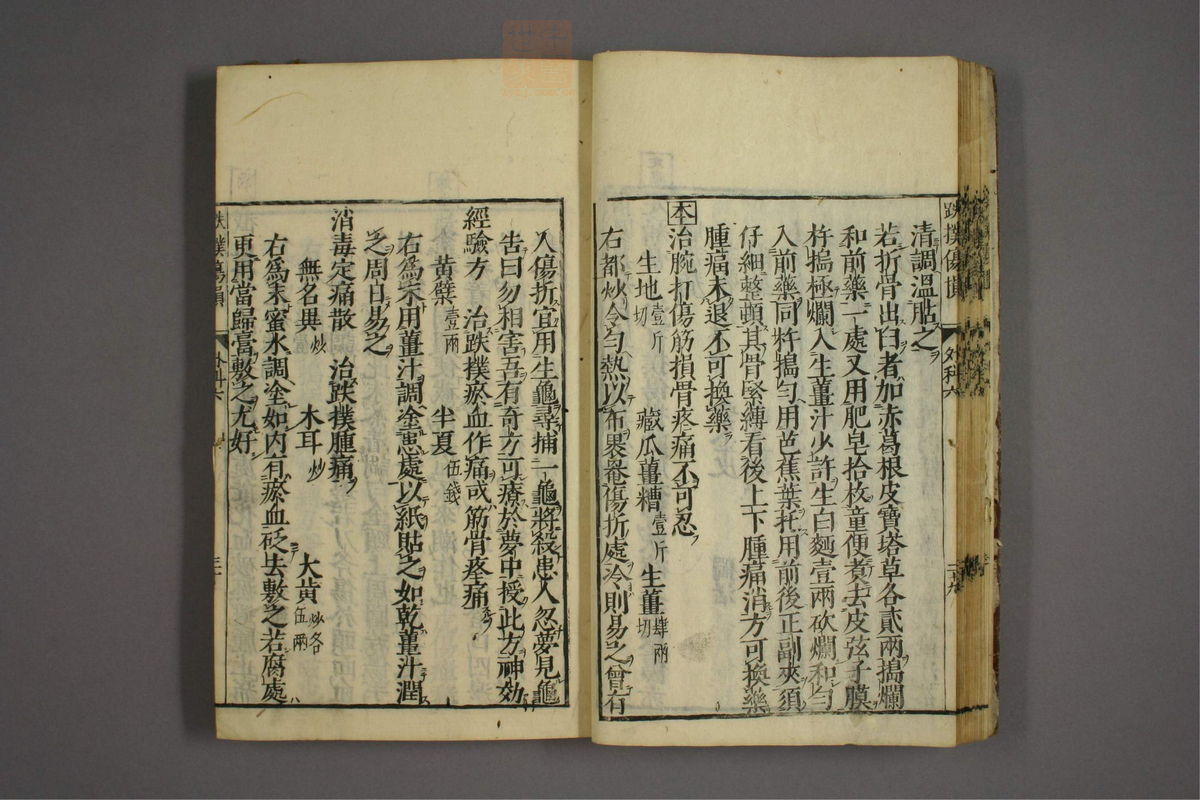 跌撲傷損 外科六
清調溫貼之
若折骨出臼者加赤葛根皮寶塔草各貳兩搗爛
和前藥一處又用肥皂拾枚童便煑去皮弦子膜
杵搗極爛入生薑汁少許生白麵壹兩砍爛和勻
入前藥同杵搗勻用芭蕉葉托用前後正副夾須
仔細整頓其骨緊縛看後上下腫痛消方可換藥
腫痛未退不可換藥
本 治腕打傷筋損骨疼痛不可忍
生地切壹斤 藏瓜薑糟壹斤 生薑切肆兩
右都炒令勻熱以布裹罨傷折處冷則易之曾有
人傷折宜用生龜尋捕一龜將殺患人忽夢見龜
告曰勿相害吾有奇方可療於夢中授此方神効
經驗方 治跌撲瘀血作痛或筋骨疼痛
黃蘗壹兩 半夏伍錢
右爲末用薑汁調塗患處以紙貼之如乾薑汁潤
之周日易之
消毒定痛散 治跌撲腫痛
無名異炒 木耳炒 大黃炒各伍兩
右爲末蜜水調塗如內有瘀血砭去敷之若腐處
更用當歸膏敷之尤好